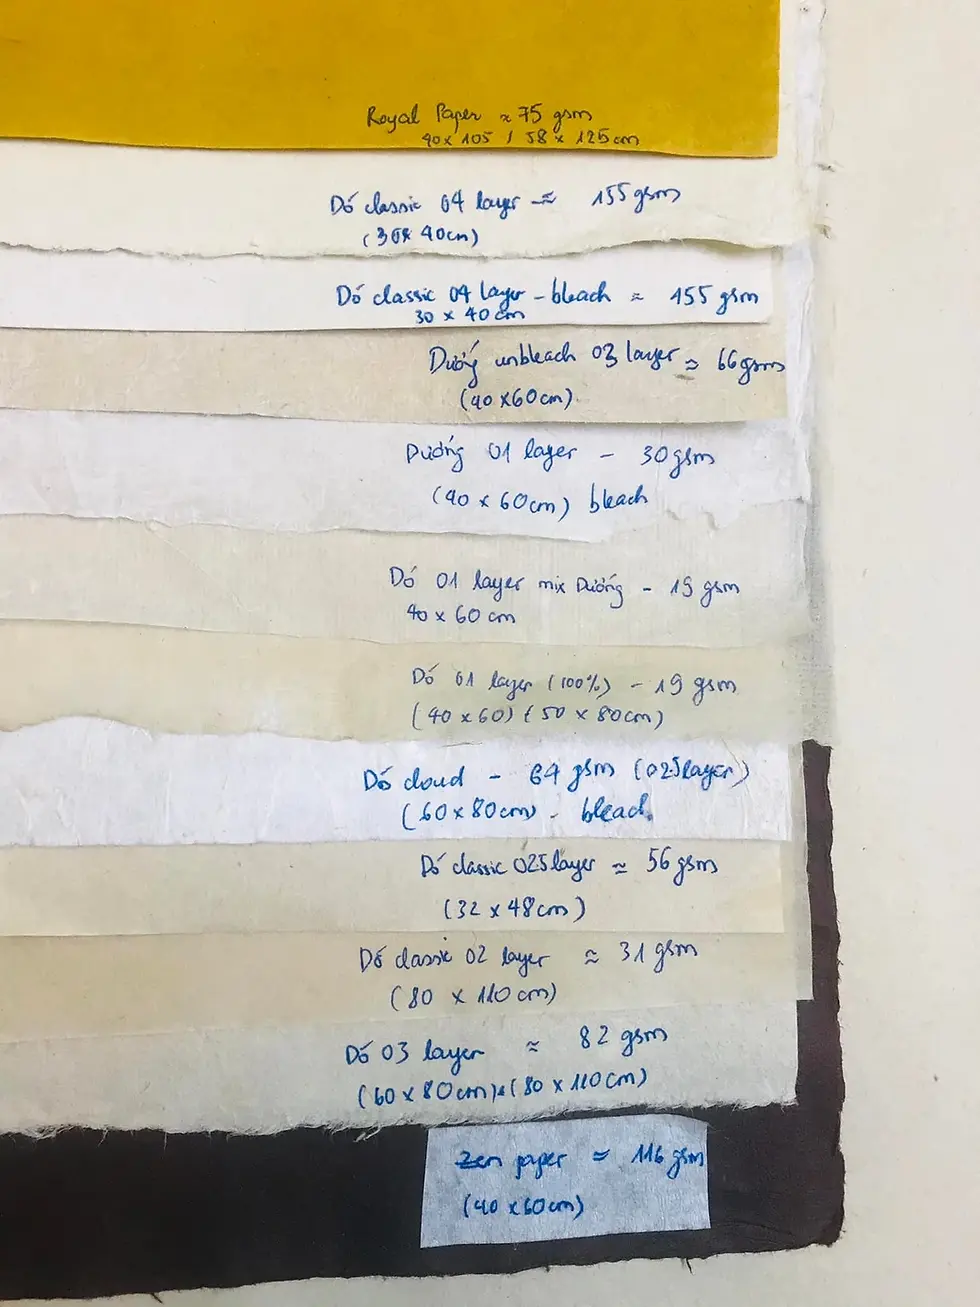 Royal Paper ≈ 75 gsm
40 x 105 / 58 x 125 cm
Dó classic 04 layer ≈ 155 gsm
(30 x 40cm)
Dó classic 04 layer - bleach ≈ 155 gsm
30 x 40 cm
Dướng unbleach 03 layer ≈ 66 gsm
(40 x 60 cm)
Dướng 01 layer - 30 gsm
(40 x 60cm) bleach
Dó 01 layer mix Dướng - 19 gsm
40 x 60 cm
Dó 01 layer (100%) - 19 gsm
(40 x 60) (50 x 80cm)
Dó cloud - 64 gsm (025 layer)
(60 x 80cm) - bleach
Dó classic 025 layer ≈ 56 gsm
(32 x 48cm)
Dó classic 02 layer ≈ 31 gsm
(80 x 110 cm)
Dó 03 layer ≈ 82 gsm
(60 x 80cm) (80 x 110 cm)
Zen paper ≈ 116 gsm
(40 x 60 cm)